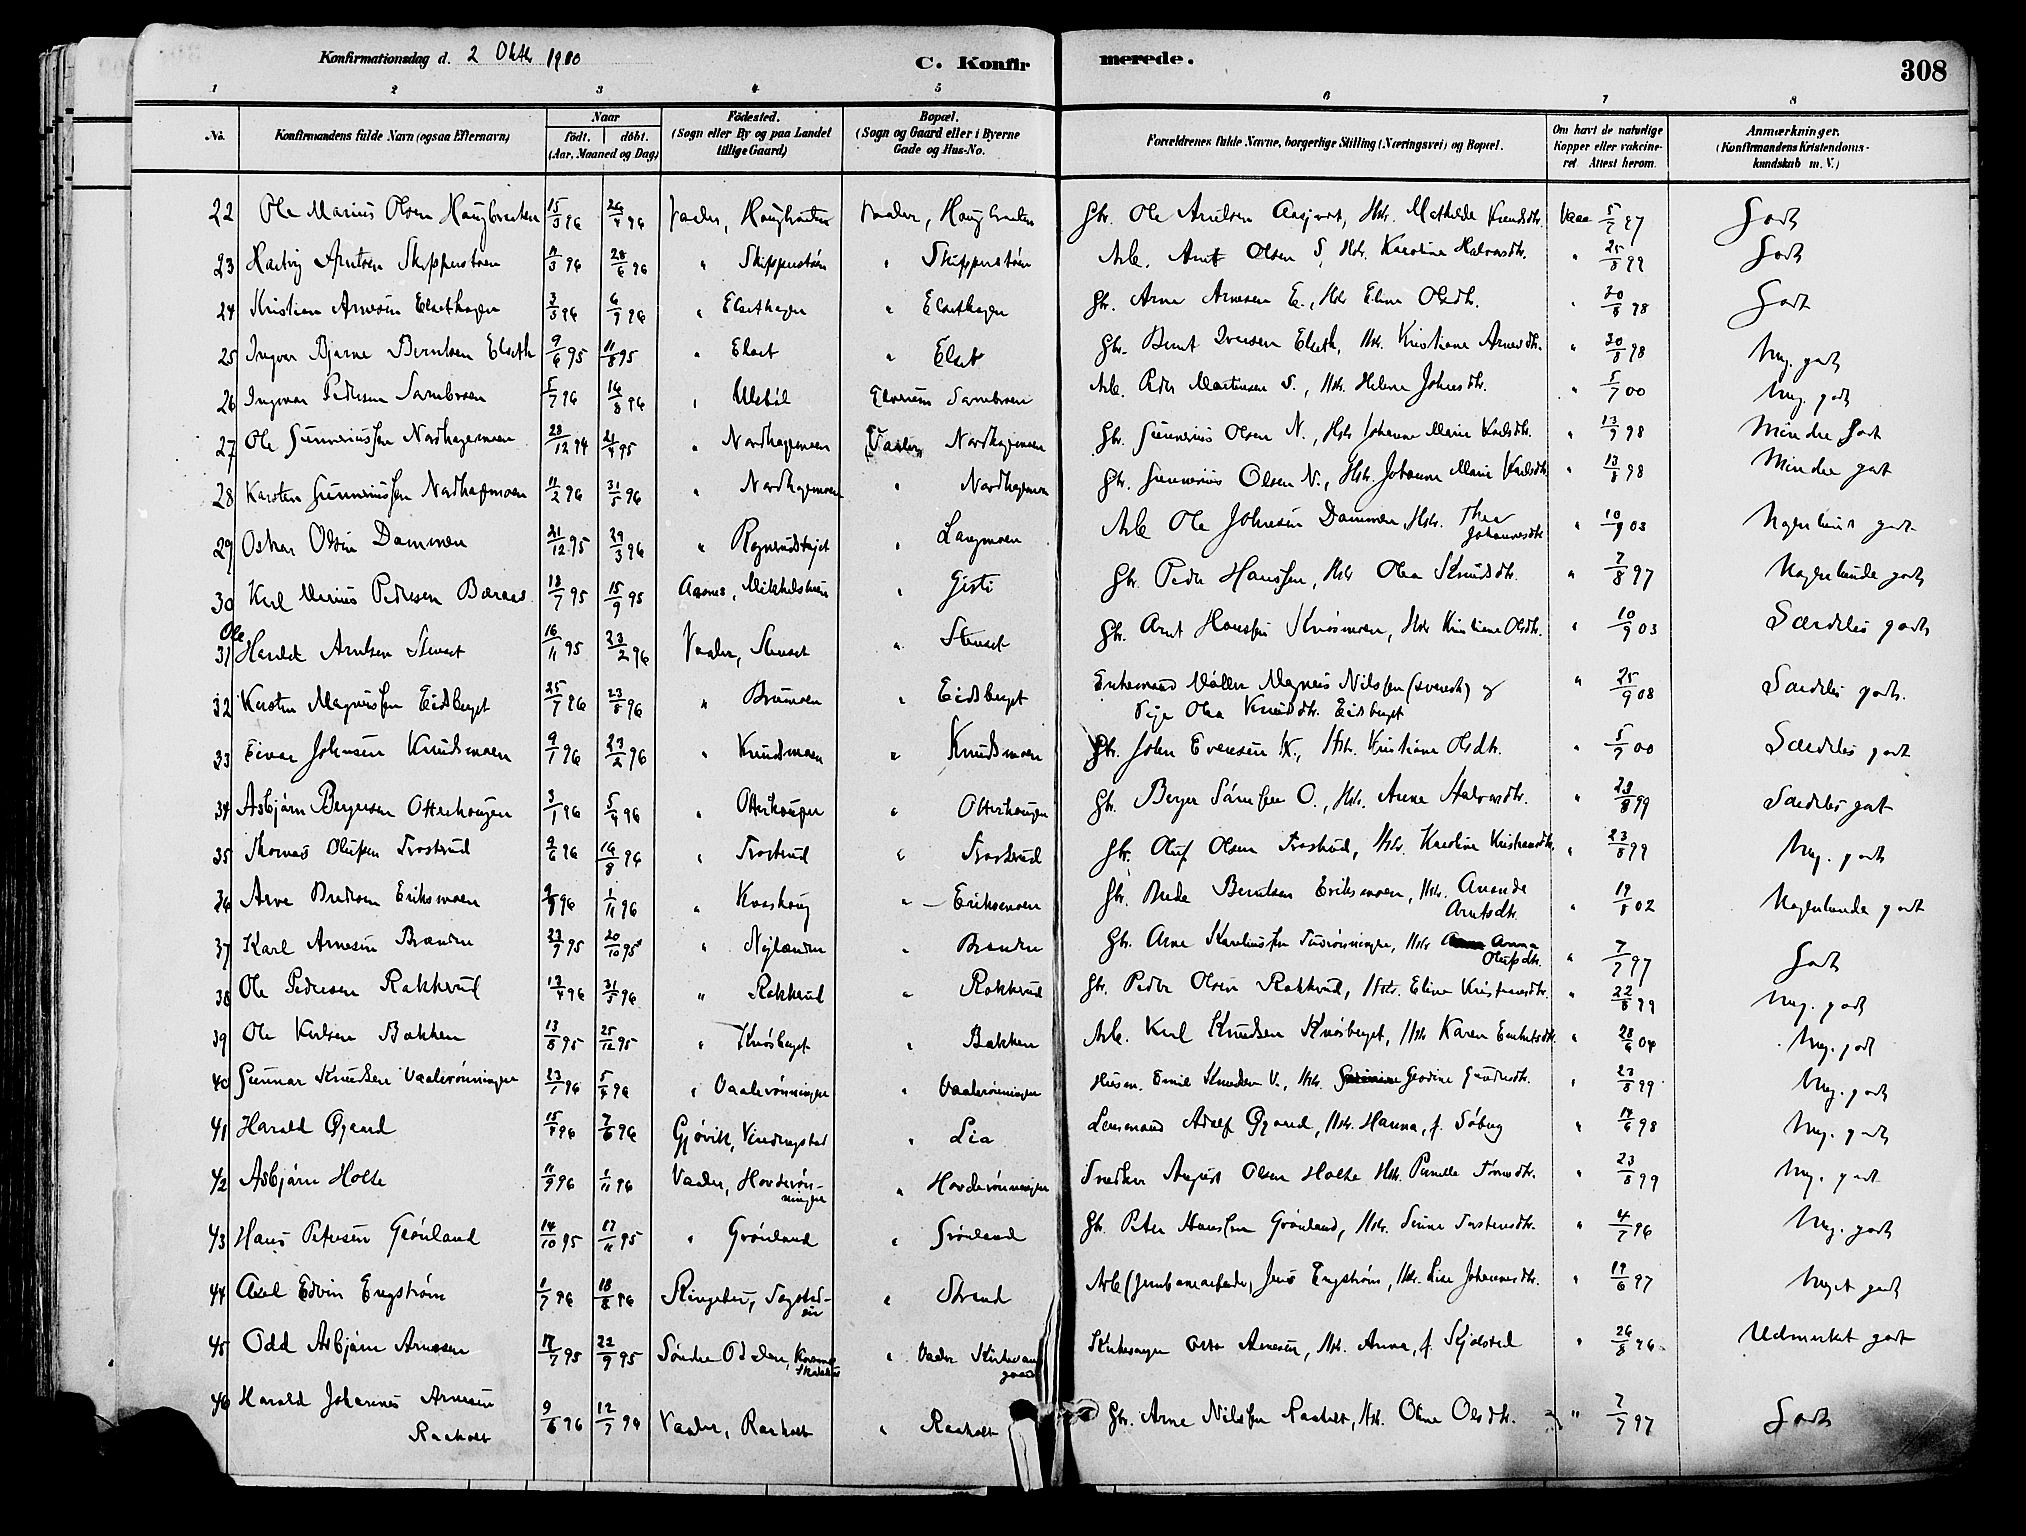 Konfirmationsdag d. 2 Oktbr 1910 C. Konfirmerede. 308
1 2 3 4 5 6 7 8
No. Konfirmandens fulde Navn (ogsaa Efternavn) Naar födt. döbt. (Aar, Maaned og Dag) Födested. (Sogn eller By og paa Landet tillige Gaard) Bopæl. (Sogn og Gaard eller i Byerne Gade og Hus-No. Forældrenes fulde Navne, borgerlige Stilling (Næringsvei) og Bopæl. Om havt de naturlige Kopper eller vakcineret. Attest herom. Anmærkninger. (Konfirmandens Kristendomskundskab m. V.)
22 Ole Marius Olsen Haugbraaten 15/3 96 26/4 96 Vaaler, Haugbraaten Vaaler, Haugbraaten Gbr. Ole Arnesen Hstr. Mathilde Knudsdtr. Vacc 5/7 97 Godt
23 Hartvig Arntsen Skipperstøen 11/3 96 28/6 96 " Skipperstøen " Skipperstøen Arb. Arnt Olsen S, Hstr. Karoline Halvorsdtr. " 25/8 99 Godt
24 Kristian Arnesen Elsethagen 3/5 96 6/9 96 " Elsethagen " Elsethagen Gbr. Arne Arnesen E., Hstr Eline Olsdtr. " 30/8 98 Godt
25 Ingvar Bjarne Berntsen Elseth 9/6 95 11/8 95 " Elset " Elset Gbr. Bernt Iversen Elseth, Hstr. Kristiane Arnesdtr. " 30/8 98 Meg. godt
26 Ingvar Pedersen Sambroen 5/7 96 16/8 96 " Ulsböl Elverum Sambroen Arb. Peder Martinsen S., Hstr Helene Johnsdtr. " 5/7 00 Meg. godt
27 Ole Gunneriussen Nordhagemoen 28/12 94 21/4 95 " Nordhagemoen (Vaaler) Nordhagemoen Gbr. Gunnerius Olsen N., Hstr Johanne Marie Karlsdtr. " 13/9 98 Mindre Godt
28 Karsten Gunneriussen Nordhagemoen 11/2 96 31/5 96 " Nordhagemoen " Nordhagemoen Gbr. Gunnerius Olsen N., Hstr. Johanne Marie Karlsdtr " 13/8 98 Mindre godt
29 Oskar Olsen Dammen 21/12 95 29/3 96 " " Langmoen Arb Ole Johnsen Dammen Hstr. Thea Johannesdtr " 10/9 03 Nogenlunde godt
30 Karl Marius Pedersen Bæraas 18/7 95 15/9 95 Aasnes, " Gisti Gbr. Peder Hanssen, Hstr Olea Knudsdtr. " 7/8 97 Nogenlunde godt
31 Ole Harald Arntsen Stenset 16/11 95 23/2 96 Vaaler, Stenset " Stenset Gbr. Arnt Hanssen Knosmoen, Hstr Kristiane Olsdtr. " 10/9 03 Særdeles godt
32 Karsten Magnussen Eidsberget 25/7 96 23/8 96 " Brumoen " Eidsberget Enkemand Møller Magnus Nilssen (svensk) og Pige Olea Knudsdtr. Eidsberget " 25/9 08 Særdeles godt.
33 Eivar Johnsen Knudsmoen 9/1 96 23/2 96 " Knudsmoen " Knudsmoen Gbr. John Evensen K., Hstr. Kristiane Olsdtr. " 5/7 00 Særdeles godt
34 Asbjørn Bergersen Otterhougen 3/1 96 5/4 96 " Otterhougen " Otterhougen Gbr. Berger O., Hstr. Anne Halvorsdtr. " 23/8 99 Særdeles godt
35 Thomas Olufsen Trostrud 9/6 96 16/8 96 " Trostrud " Trostrud Gbr. Oluf Olsen Trostrud, Hstr. Karoline Kristiansdtr. " 23/8 99 Meg. godt
36 Arve Bredesen Eriksmoen 9/8 96 1/11 96 " Kvashoug " Eriksmoen Gbr. Brede Berntsen Eriksmoen, Hstr. Amanda Arntsdtr. " 19/8 02 Nogenlunde godt
37 Karl Arnesen Brænden 23/7 95 20/10 95 " " Brænden Gbr. Arne Hstr Anna Olufsdtr. " 7/7 97 Godt
38 Ole Pedersen Rakkrud 12/4 96 31/5 96 " Rakkrud " Rakkrud Gbr. Peder Olsen Rakkrud, Hstr. Eline Kristiansdtr. " 22/8 99 Meg. godt
39 Ole Karlsen Bakken 13/8 95 25/12 95 " Knosberget " Bakken Arb. Karl Knudsen Knosberget, Hstr Karen " 28/6 04 Meg. godt
40 Gunnar Knudsen Vaalerønningen 23/1 96 5/4 96 " Vaalerønningen " Vaalerønningen Husm. Emil Knudsen V., Hstr. " 23/8 99 Meg. godt
41 Harald Øgaard 15/4 96 7/6 96 Gjøvik, Vindingstad " Lia Lensmand Adolf Øgaard, Hstr. Hanna, f. Søberg " 17/6 98 Meg. godt
42 Asbjørn Holte 11/9 96 1/11 96 Vaaler, Hovderønningen " Hovderønningen Snedker August Olsen Holte Hstr. Pernille " 23/8 99 Meg. godt
43 Hans Petersen Grönland 14/10 95 17/11 95 " Grönland " Grönland Gbr. Peter Hanssen Grönland, Hstr. " 4/7 96 Meg. godt
44 Axel Edvin Engström 1/7 96 18/8 96 Ringebu, " Strand Arb (Jernbanearbeider) Jens Engström, Hstr. Lise Johannesdtr. " 19/6 97 Meget godt
45 Odd Asbjørn Arnesen 17/7 95 22/9 95 Søndre Odalen, " Vaaler Kirkesanger Otto Arnesen, Hstr. Anna, f. Skjølsted " 26/8 96 Udmerket godt
46 Harald Johannes Arnesen Raaholt 9/6 96 12/7 96 Vaaler, Raaholt " Raaholt Gbr. Arne Nilssen Raaholt, Hstr. Oline Olsdtr. " 7/7 97 Godt